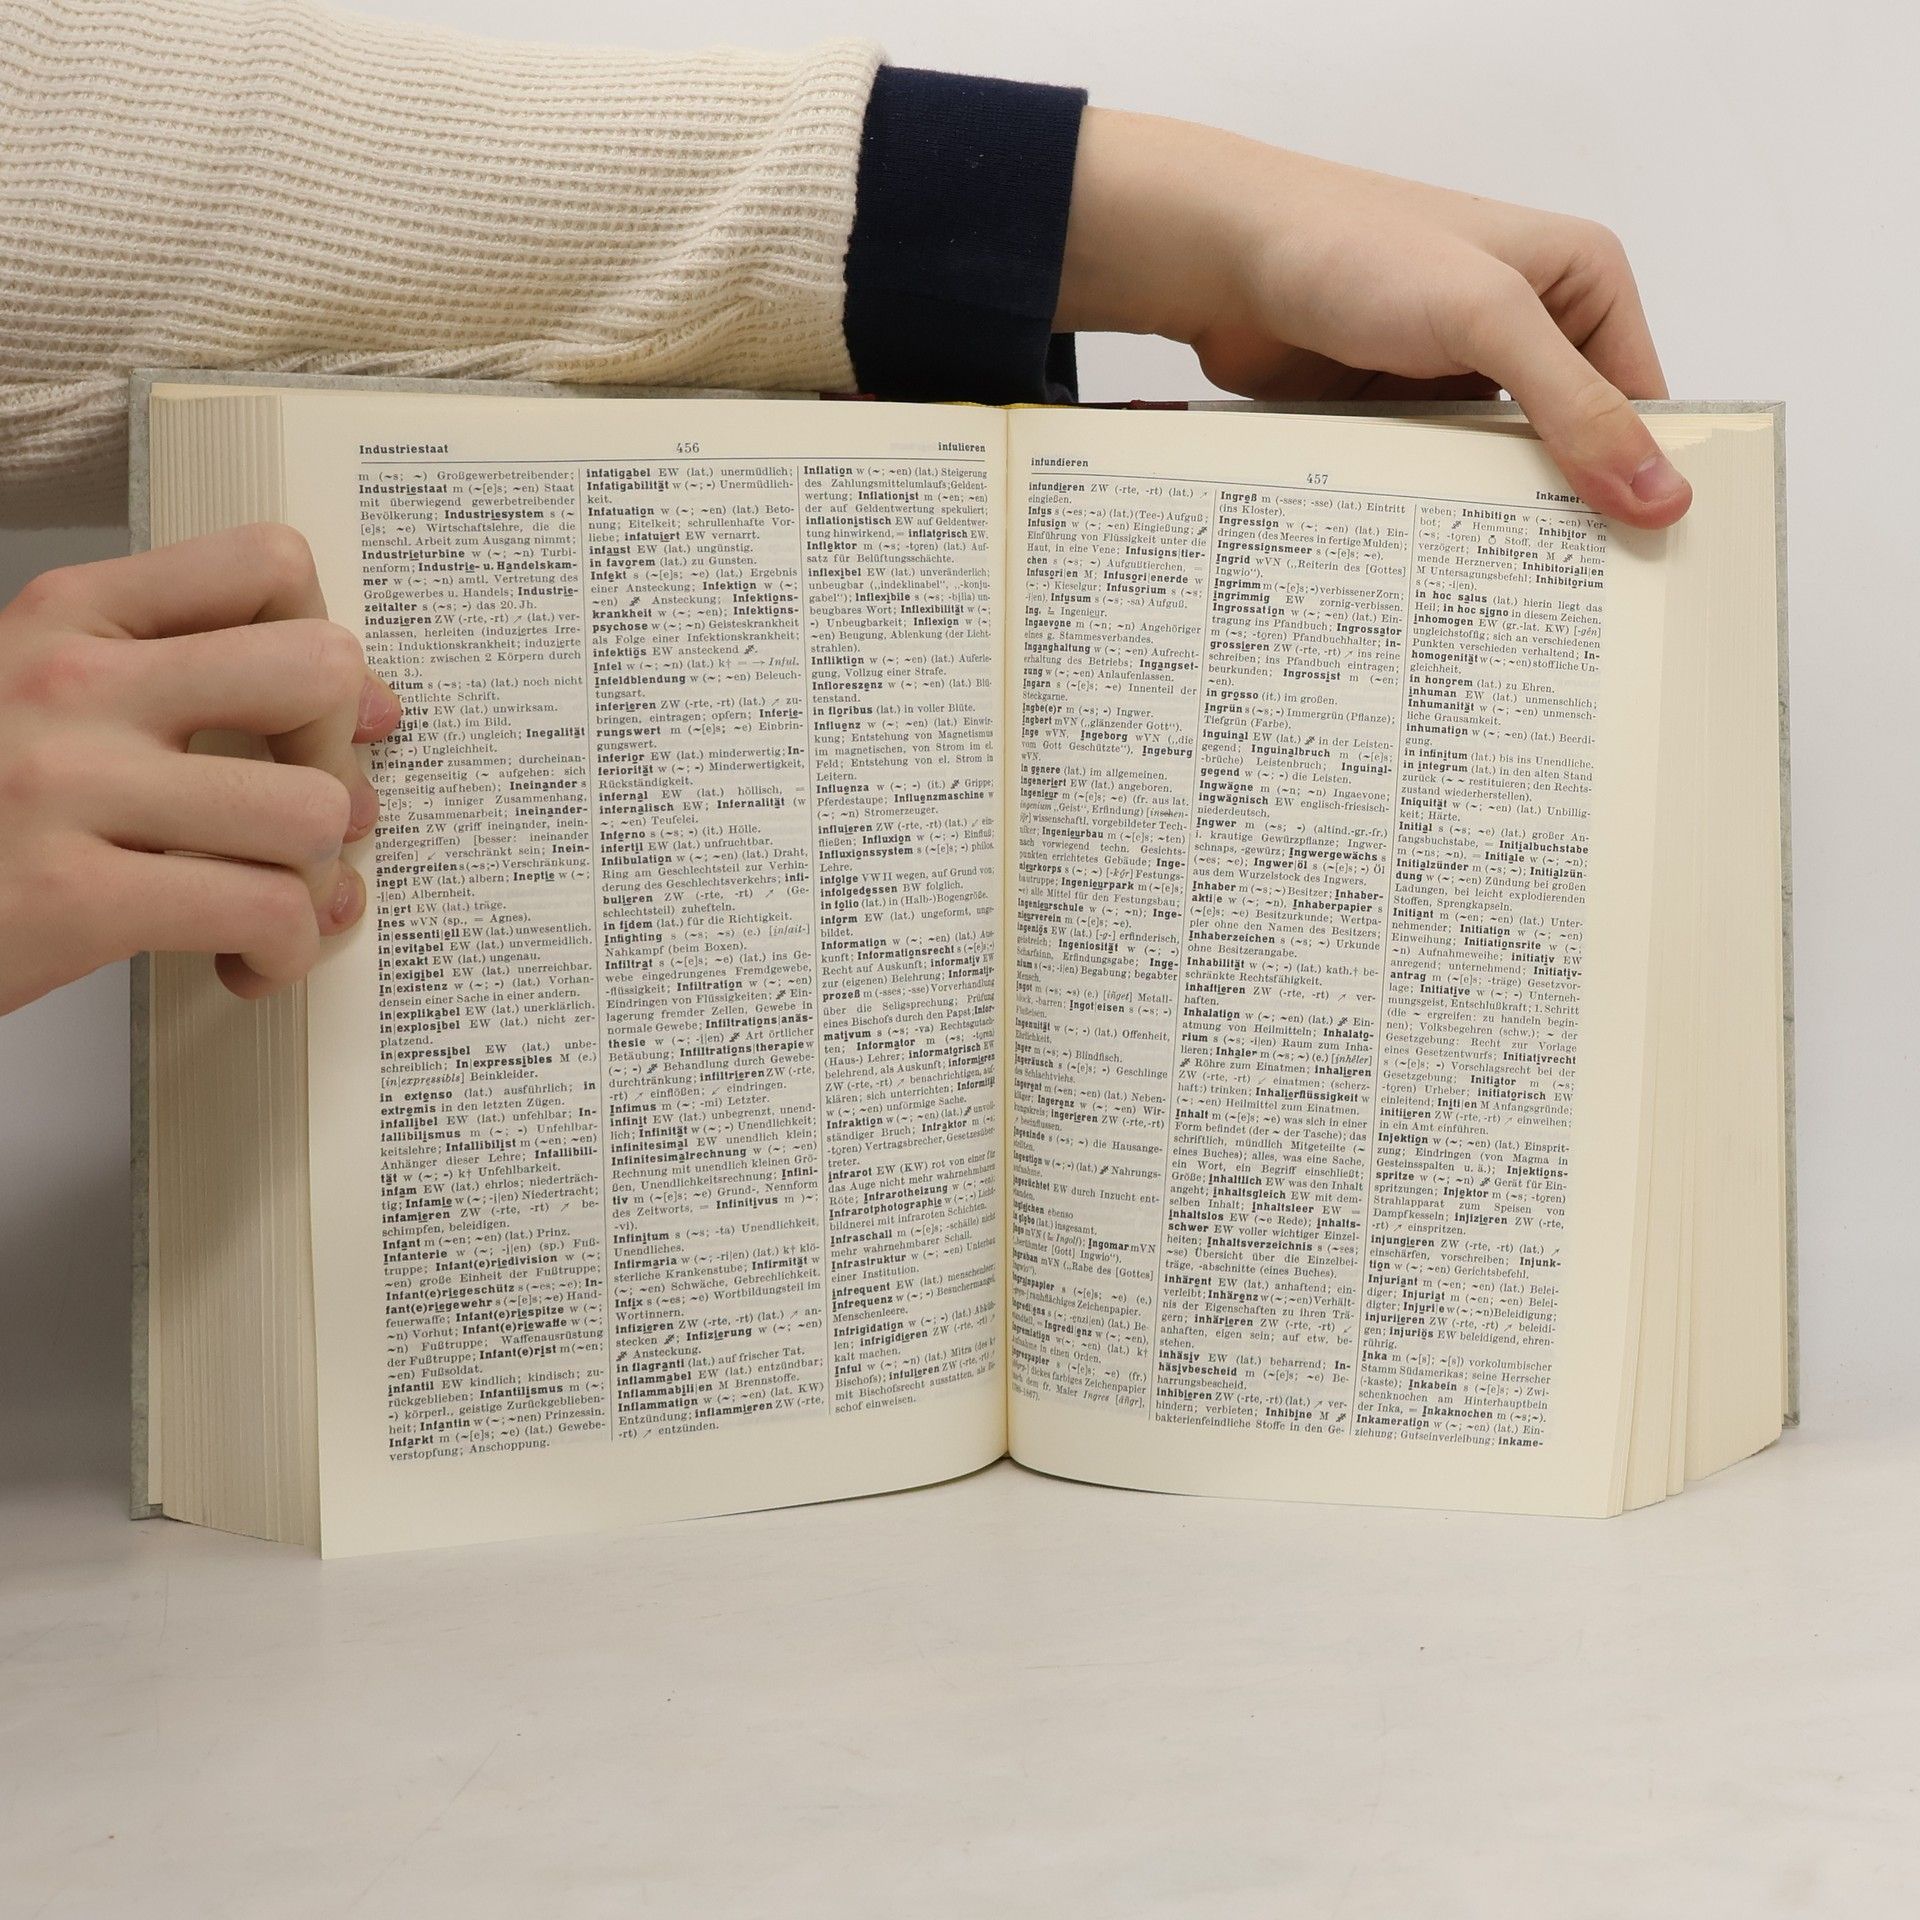 Industriestaat
456
infulieren
m (~s; ~) Großgewerbetreibender;
Industriestaat m (~[e]s; ~en) Staat
mit überwiegend gewerbetreibender
Bevölkerung; Industriesystem s (~
[e]s; ~e) Wirtschaftslehre, die die
menschl. Arbeit zum Ausgang nimmt;
Industrieturbine w (~; ~n) Turbi-
nenform; Industrie- u. Handelskam-
mer w (~; ~n) amtl. Vertretung des
Großgewerbes u. Handels; Industrie-
zeitalter s (~s; ~) das 20. Jh.
induzieren ZW (-rte, -rt) ↗ (lat.) ver-
anlassen, herleiten (induziertes Irre-
sein: Induktionskrankheit; induzierte
Reaktion: zwischen 2 Körpern durch
nen 3.).
ditum s (~s; -ta) (lat.) noch nicht
fentlichte Schrift.
ektiv EW (lat.) unwirksam.
igie (lat.) im Bild.
egal EW (fr.) ungleich; Inegalität
w (~; -) Ungleichheit.
in|einander zusammen; durcheinan-
der; gegenseitig (~ aufgehen: sich
gegenseitig aufheben); Ineinander s
~[e]s; -) inniger Zusammenhang,
este Zusammenarbeit; ineinander-
greifen ZW (griff ineinander, inein-
andergegriffen) [besser: ineinander
greifen] ↙ verschränkt sein; Inein-
andergreifen s (~s; -) Verschränkung.
inept EW (lat.) albern; Ineptie w (~;
-i|en) Albernheit.
in|ert EW (lat.) träge.
Ines wVN (sp., = Agnes).
in|essenti|ell EW (lat.) unwesentlich.
in|evitabel EW (lat.) unvermeidlich.
in|exakt EW (lat.) ungenau.
in|exigibel EW (lat.) unerreichbar.
In|existenz w (~; -) (lat.) Vorhan-
densein einer Sache in einer andern.
in|explikabel EW (lat.) unerklärlich.
in|explosibel EW (lat.) nicht zer-
platzend.
in|expressibel EW (lat.) unbe-
schreiblich; In|expressibles M (e.)
[in|expressibls] Beinkleider.
in extenso (lat.) ausführlich; in
extremis in den letzten Zügen.
infallibel EW (lat.) unfehlbar; In-
fallibilismus m (~; -) Unfehlbar-
keitslehre; Infallibilist m (~en; ~en)
Anhänger dieser Lehre; Infallibili-
tät w (~; -) k† Unfehlbarkeit.
infam EW (lat.) ehrlos; niederträch-
tig; Infamie w (~; -i|en) Niedertracht;
infamieren ZW (-rte, -rt) ↗ be-
schimpfen, beleidigen.
Infant m (~en; ~en) (lat.) Prinz.
Infanterie w (~; -i|en) (sp.) Fuß-
truppe; Infant(e)riedivision w (~;
~en) große Einheit der Fußtruppe;
Infant(e)riegeschütz s (~es; ~e); In-
fant(e)riegewehr s (~[e]s; ~e) Hand-
feuerwaffe; Infant(e)riespitze w (~;
~n) Vorhut; Infant(e)riewaffe w (~;
~n) Fußtruppe; Waffenausrüstung
der Fußtruppe; Infant(e)rist m (~en;
~en) Fußsoldat.
infantil EW kindlich; kindisch; zu-
rückgeblieben; Infantilismus m (~;
-) körperl., geistige Zurückgeblieben-
heit; Infantin w (~; ~nen) Prinzessin.
Infarkt m (~[e]s; ~e) (lat.) Gewebe-
verstopfung; Anschoppung.
infatigabel EW (lat.) unermüdlich;
Infatigabilität w (~; -) Unermüdlich-
keit.
Infatuation w (~; ~en) (lat.) Beto-
nung; Eitelkeit; schrullenhafte Vor-
liebe; infatuiert EW vernarrt.
infaust EW (lat.) ungünstig.
in favorem (lat.) zu Gunsten.
Infekt s (~[e]s; ~e) (lat.) Ergebnis
einer Ansteckung; Infektion w (~;
~en) Ansteckung; Infektions-
krankheit w (~; ~en); Infektions-
psychose w (~; ~n) Geisteskrankheit
als Folge einer Infektionskrankheit;
infektiös EW ansteckend.
Infel w (~; ~n) (lat.) k† = → Inful.
Infeldblendung w (~; ~en) Beleuch-
tungsart.
inferieren ZW (-rte, -rt) (lat.) ↗ zu-
bringen, eintragen; opfern; Inferie-
rungswert m (~[e]s; ~e) Einbrin-
gungswert.
inferior EW (lat.) minderwertig; In-
feriorität w (~; -) Minderwertigkeit,
Rückständigkeit.
infernal EW (lat.) höllisch, =
infernalisch EW; Infernalität (w
~; ~en) Teufelei.
Inferno s (~s; -) (it.) Hölle.
infertil EW (lat.) unfruchtbar.
Infibulation w (~; ~en) (lat.) Draht,
Ring am Geschlechtsteil zur Verhin-
derung des Geschlechtsverkehrs; infi-
bulieren ZW (-rte, -rt) ↗ (Ge-
schlechtsteil) zuheften.
in fidem (lat.) für die Richtigkeit.
Infighting s (~s; ~s) (e.) [infait-]
Nahkampf (beim Boxen).
Infiltrat s (~[e]s; ~e) (lat.) ins Ge-
webe eingedrungenes Fremdgewebe,
-flüssigkeit; Infiltration w (~; ~en)
Eindringen von Flüssigkeiten; Ein-
lagerung fremder Zellen, Gewebe in
normale Gewebe; Infiltrations|anäs-
thesie w (~; -i|en) Art örtlicher
Betäubung; Infiltrations|therapie w
(~; -) Behandlung durch Gewebe-
durchtränkung; infiltrieren ZW (-rte,
-rt) ↗ einflößen; ↙ eindringen.
Infimus m (~; -mi) Letzter.
infinit EW (lat.) unbegrenzt, unend-
lich; Infinität w (~; -) Unendlichkeit;
infinitesimal EW unendlich klein;
Infinitesimalrechnung w (~; ~en)
Rechnung mit unendlich kleinen Grö-
ßen, Unendlichkeitsrechnung; Infini-
tiv m (~[e]s; ~e) Grund-, Nennform
des Zeitworts, = Infinitivus m )~;
-vi).
Infinitum s (~s; -ta) Unendlichkeit,
Unendliches.
Infirmaria w (~; -ri|en) (lat.) k† klö-
sterliche Krankenstube; Infirmität w
(~; ~en) Schwäche, Gebrechlichkeit.
Infix s (~es; ~e) Wortbildungsteil im
Wortinnern.
infizieren ZW (-rte, -rt) (lat.) ↗ an-
stecken; Infizierung w (~; ~en)
Ansteckung.
in flagranti (lat.) auf frischer Tat.
inflammabel EW (lat.) entzündbar;
Inflammabili|en M Brennstoffe.
Inflammation w (~; ~en) (lat. KW)
Entzündung; inflammieren ZW (-rte,
-rt) ↗ entzünden.
Inflation w (~; ~en) (lat.) Steigerung
des Zahlungsmittelumlaufs; Geldent-
wertung; Inflationist m (~en; ~en)
der auf Geldentwertung spekuliert;
inflationistisch EW auf Geldentwer-
tung hinwirkend, = inflatorisch EW.
Inflektor m (~s; -toren) (lat.) Auf-
satz für Belüftungsschächte.
inflexibel EW (lat.) unveränderlich;
unbeugbar („indeklinabel“, „-konju-
gabel“); Inflexibile s (~s; -bilia) un-
beugbares Wort; Inflexibilität w (~;
-) Unbeugbarkeit; Inflexion w (~;
~en) Beugung, Ablenkung (der Licht-
strahlen).
Infliktion w (~; ~en) (lat.) Auferle-
gung, Vollzug einer Strafe.
Infloreszenz w (~; ~en) (lat.) Blü-
tenstand.
in floribus (lat.) in voller Blüte.
Influenz w (~; ~en) (lat.) Einwir-
kung; Entstehung von Magnetismus
im magnetischen, von Strom im el.
Feld; Entstehung von el. Strom in
Leitern.
Influenza w (~; -) (it.) Grippe;
Pferdestaupe; Influenzmaschine w
(~; ~n) Stromerzeuger.
influieren ZW (-rte, -rt) (lat.) ↙ ein-
fließen; Influxion w (~; ~en) Einfluß;
Influxionssystem s (~[e]s; -) philos.
Lehre.
infolge VW II wegen, auf Grund von;
infolgedessen BW folglich.
in folio (lat.) in (Halb-)Bogengröße.
inform EW (lat.) ungeformt, unge-
bildet.
Information w (~; ~en) (lat.) Aus-
kunft; Informationsrecht s (~[e]s; -)
Recht auf Auskunft; informativ EW
zur (eigenen) Belehrung; Informativ-
prozeß m (-sses; -sse) Vorverhandlung
über die Seligsprechung; Prüfung
eines Bischofs durch den Papst; Infor-
mativum s (~s; -va) Rechtsgutach-
ten; Informator m (~s; -toren)
(Haus-) Lehrer; informatorisch EW
belehrend, als Auskunft; informieren
ZW (-rte, -rt) ↗ benachrichtigen, auf-
klären; sich unterrichten; Informität
w (~; ~en) unförmige Sache.
Infraktion w (~; ~en) (lat.) unvoll-
ständiger Bruch; Infraktor m (~s;
-toren) Vertragsbrecher, Gesetzesüber-
treter.
infrarot EW (KW) rot von einer für
das Auge nicht mehr wahrnehmbaren
Röte; Infrarotheizung w (~; ~en);
Infrarotphotographie w (~; -) Licht-
bildnerei mit infraroten Schichten.
Infraschall m (~[e]s; -schälle) nicht
mehr wahrnehmbarer Schall.
Infrastruktur w (~; ~en) Unterbau
einer Institution.
infrequent EW (lat.) menschenleer;
Infrequenz w (~; ~en) Besuchermangel,
Menschenleere.
Infrigidation w (~; -) (lat.) Abküh-
len; infrigidieren ZW (-rte, -rt) ↗
kalt machen.
Inful w (~; ~n) (lat.) Mitra (des k†
Bischofs); infulieren ZW (-rte, -rt) ↗
mit Bischofsrecht ausstatten, als Bi-
schof einweisen.
infundieren
457
Inkamer
infundieren ZW (-rte, -rt) (lat.) ↗
eingießen.
Infus s (~es; ~a) (lat.) (Tee-) Aufguß;
Infusion w (~; ~en) Eingießung;
Einführung von Flüssigkeit unter die
Haut, in eine Vene; Infusions|tier-
chen s (~s; ~) Aufgußtierchen, =
Infusori|en M; Infusori|enerde w
(~; -) Kieselgur; Infusorium s (~s;
-i|en), Infusum s (~s; -sa) Aufguß.
Ing. Ingenieur.
Ingaevone m (~n; ~n) Angehöriger
eines g. Stammesverbandes.
Inganghaltung w (~; ~en) Aufrecht-
erhaltung des Betriebs; Ingangset-
zung w (~; ~en) Anlaufenlassen.
Ingarn s (~[e]s; ~e) Innenteil der
Steckgarne.
Ingbe(e)r m (~s; ~) Ingwer.
Ingbert mVN („glänzender Gott“).
Inge wVN, Ingeborg wVN („die
vom Gott Geschützte“), Ingeburg
wVN.
in genere (lat.) im allgemeinen.
ingeneriert EW (lat.) angeboren.
Ingenieur m (~[e]s; ~e) (fr. aus lat.
ingenium „Geist“, Erfindung) [inschen-
iör] wissenschaftl. vorgebildeter Tech-
niker; Ingenieurbau m (~[e]s; ~ten)
nach vorwiegend techn. Gesichts-
punkten errichtetes Gebäude; Inge-
nieurkorps s (~; ~) [-kōr] Festungs-
bautruppe; Ingenieurpark m (~[e]s;
~e) alle Mittel für den Festungsbau;
Ingenieurschule w (~; ~n); Inge-
nieurverein m (~[e]s; ~e).
ingeniös EW (lat.) [-g-] erfinderisch,
geistreich; Ingeniosität w (~; -)
Scharfsinn, Erfindungsgabe; Inge-
nium s (~s; -i|en) Begabung; begabter
Mensch.
Ingot m (~s; ~s) (e.) [ingŏt] Metall-
block, -barren; Ingot|eisen s (~s; -)
Flußeisen.
Ingenuität w (~; -) (lat.) Offenheit,
Ehrlichkeit.
Inger m (~s; ~) Blindfisch.
Ingeräusch s (~es; ~e) Geschlinge
des Schlachtviehs.
Ingerent m (~en; ~en) (lat.) Neben-
kläger; Ingerenz w (~; ~en) Wir-
kungskreis; ingerieren ZW (-rte, -rt)
↗ beeinflussen.
Ingesinde s (~s; ~) die Hausange-
stellten.
Ingestion w (~; -) (lat.) Nahrungs-
aufnahme.
ingezüchtet EW durch Inzucht ent-
standen.
ingleichen ebenso
in globo (lat.) insgesamt.
Ingo mVN (Ingolf); Ingomar mVN
(„berühmter [Gott] Ingwio“).
Ingraban mVN „Rabe des [Gottes]
Ingwio“).
Ingrainpapier s (~[e]s; ~e) (e.)
rauhflächiges Zeichenpapier.
Ingrediens s (~; -enzi|en) (lat.) Be-
standteil, = Ingredi|enz w (~; ~en).
Ingremiation w (~; ~en) (lat.) k†
Aufnahme in einen Orden.
Ingrespapier s (~[e]s; ~e) (fr.)
dickes farbiges Zeichenpapier
nach dem fr. Maler Ingres [äñgr],
1780-1867).
Ingreß m (-sses; -sse) (lat.) Eintritt
(ins Kloster).
Ingression w (~; ~en) (lat.) Ein-
dringen (des Meeres in fertige Mulden);
Ingressionsmeer s (~[e]s; ~e).
Ingrid wVN („Reiterin des [Gottes]
Ingwio“).
Ingrimm m (~[e]s; -) verbissener Zorn;
ingrimmig EW zornig-verbissen.
Ingrossation w (~; ~en) (lat.) Ein-
tragung ins Pfandbuch; Ingrossator
m (~s; -toren) Pfandbuchhalter; in-
grossieren ZW (-rte, -rt) ↗ ins reine
schreiben; ins Pfandbuch eintragen;
beurkunden; Ingrossist m (~en;
~en).
in grosso (it.) im großen.
Ingrün s (~s; -) Immergrün (Pflanze);
Tiefgrün (Farbe).
inguinal EW (lat.) in der Leisten-
gegend; Inguinalbruch m (~[e]s;
-brüche) Leistenbruch; Inguinal-
gegend w (~; -) die Leisten.
Ingwäone m (~n; ~n) Ingaevone;
ingwäonisch EW englisch-friesisch-
niederdeutsch.
Ingwer m (~s; -) (altind.-gr.-fr.)
i. krautige Gewürzpflanze; Ingwer-
schnaps, -gewürz; Ingwergewächs s
(~es; ~e); Ingwer|öl s (~[e]s; ~) Öl
aus dem Wurzelstock des Ingwers.
Inhaber m (~s; ~) Besitzer; Inhaber-
aktie w (~; ~n), Inhaberpapier s
(~[e]s; ~e) Besitzurkunde; Wertpa-
pier ohne den Namen des Besitzers;
Inhaberzeichen s (~s; ~) Urkunde
ohne Besitzerangabe.
Inhabilität w (~; -) (lat.) kath.† be-
schränkte Rechtsfähigkeit.
inhaftieren ZW (-rte, -rt) ↗ ver-
haften.
Inhalation w (~; ~en) (lat.) Ein-
atmung von Heilmitteln; Inhalato-
rium s (~s; -i|en) Raum zum Inha-
lieren; Inhaler m (~s; ~) (e.) [inhēler]
Röhre zum Einatmen; inhalieren
ZW (-rte, -rt) ↙ einatmen; (scherz-
haft:) trinken; Inhalierflüssigkeit w
(~; ~en) Heilmittel zum Einatmen.
Inhalt m (~[e]s; ~e) was sich in einer
Form befindet (der ~ der Tasche); das
schriftlich, mündlich Mitgeteilte (~
eines Buches); alles, was eine Sache,
ein Wort, ein Begriff einschließt;
Größe; inhaltlich EW was den Inhalt
angeht; inhaltsgleich EW mit dem-
selben Inhalt; inhaltsleer EW =
inhaltslos EW (~e Rede); inhalts-
schwer EW voller wichtiger Einzel-
heiten; Inhaltsverzeichnis s (~ses;
~se) Übersicht über die Einzelbei-
träge, -abschnitte (eines Buches).
inhärent EW (lat.) anhaftend; ein-
verleibt; Inhärenz w (~; ~en) Verhält-
nis der Eigenschaften zu ihren Trä-
gern; inhärieren ZW (-rte, -rt) ↙
anhaften, eigen sein; auf etw. be-
stehen.
inhäsiv EW (lat.) beharrend; In-
häsivbescheid m (~[e]s; ~e) Be-
harrungsbescheid.
inhibieren ZW (-rte, -rt) (lat.) ↗ ver-
hindern; verbieten; Inhibine M
bakterienfeindliche Stoffe in den Ge-
weben; Inhibition w (~; ~en) Ver-
bot; Hemmung; Inhibitor m
(~s; -toren) Stoff, der Reaktion
verzögert; Inhibitoren M hem-
mende Herznerven; Inhibitoriali|en
M Untersagungsbefehl; Inhibitorium
s (~s; -i|en).
in hoc salus (lat.) hierin liegt das
Heil; in hoc signo in diesem Zeichen.
inhomogen EW (gr.-lat. KW) [-gēn]
ungleichstoffig; sich an verschiedenen
Punkten verschieden verhaltend; In-
homogenität w (~; ~en) stoffliche Un-
gleichheit.
in honorem (lat.) zu Ehren.
inhuman EW (lat.) unmenschlich;
Inhumanität w (~; ~en) unmensch-
liche Grausamkeit.
Inhumation w (~; ~en) (lat.) Beerdi-
gung.
in infinitum (lat.) bis ins Unendliche.
in integrum (lat.) in den alten Stand
zurück (~ ~ restituieren; den Rechts-
zustand wiederherstellen).
Iniquität w (~; ~en) (lat.) Unbillig-
keit; Härte.
Initial s (~s; ~e) (lat.) großer An-
fangsbuchstabe, = Initialbuchstabe
m (~ns; ~n), = Initiale w (~; ~n);
Initialzünder m (~s; ~); Initialzün-
dung w (~; ~en) Zündung bei großen
Ladungen, bei leicht explodierenden
Stoffen, Sprengkapseln.
Initiant m (~en; ~en) (lat.) Unter-
nehmender; Initiation w (~; ~en)
Einweihung; Initiationsrite w (~;
~n) Aufnahmeweihe; initiativ EW
anregend; unternehmend; Initiativ-
antrag m (~[e]s; -träge) Gesetzvor-
lage; Initiative w (~; ~n) Unterneh-
mungsgeist, Entschlußkraft; 1. Schritt
(die ~ ergreifen: zu handeln begin-
nen); Volksbegehren (schw.); ~ der
Gesetzgebung: Recht zur Vorlage
eines Gesetzentwurfs; Initiativrecht
s (~[e]s; ~e) Vorschlagsrecht bei der
Gesetzgebung; Initiator m (~s;
-toren) Urheber; initiatorisch EW
einleitend; Initi|en M Anfangsgründe;
initiieren ZW (-rte, -rt) ↗ einweihen;
in ein Amt einführen.
Injektion w (~; ~en) (lat.) Einsprit-
zung; Eindringen (von Magma in
Gesteinsspalten u. ä.); Injektions-
spritze w (~; ~n) Gerät für Ein-
spritzungen; Injektor m (~s; -toren)
Strahlapparat zum Speisen von
Dampfkesseln; injizieren ZW (-rte,
-rt) ↗ einspritzen.
injungieren ZW (-rte, -rt) (lat.) ↗
einschärfen, vorschreiben; Injunk-
tion w (~; ~en) Gerichtsbefehl.
Injuriant m (~en; ~en) (lat.) Belei-
diger; Injuriat m (~en; ~en) Belei-
digter; Injuri|e w (~; ~n) Beleidigung;
injuriieren ZW (-rte, -rt) ↗ beleidi-
gen; injuriös EW beleidigend, ehren-
rührig.
Inka m (~[s]; ~[s]) vorkolumbischer
Stamm Südamerikas; seine Herrscher
(-kaste); Inkabein s (~[e]s; -) Zwi-
schenknochen am Hinterhauptbein
der Inka, = Inkaknochen m (~s; ~).
Inkameration w (~; ~en) (lat.) Ein-
ziehung; Gutseinverleibung; inkame-